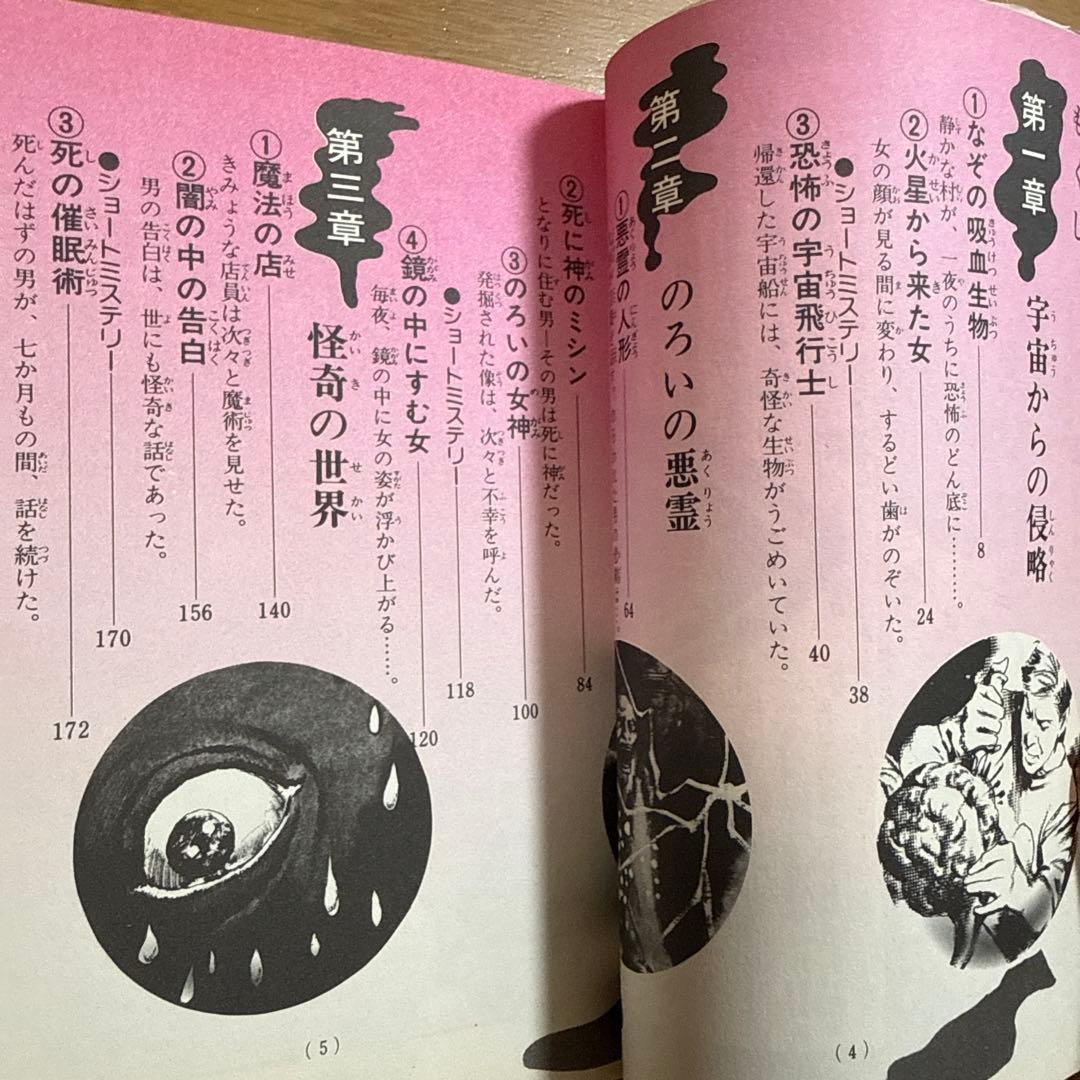 もくじ
第一章
宇宙からの侵略
①なぞの吸血生物 8
静かな村が、一夜のうちに恐怖のどん底に………。
②火星から来た女 24
女の顔が見る間に変わり、するどい歯がのぞいた。
●ショートミステリー 38
③恐怖の宇宙飛行士 40
帰還した宇宙船には、奇怪な生物がうごめいていた。
(4)
第二章
のろいの悪霊
①悪霊の人形 64
②死に神のミシン 84
となりに住む男―その男は死に神だった。
③のろいの女神 100
発掘された像は、次々と不幸を呼んだ。
●ショートミステリー 118
④鏡の中にすむ女 120
毎夜、鏡の中に女の姿が浮かび上がる……。
第三章
怪奇の世界
①魔法の店 140
きみょうな店員は次々と魔術を見せた。
②闇の中の告白 156
男の告白は、世にも怪奇な話であった。
●ショートミステリー 170
③死の催眠術 172
死んだはずの男が、七か月もの間、話を続けた。
(5)